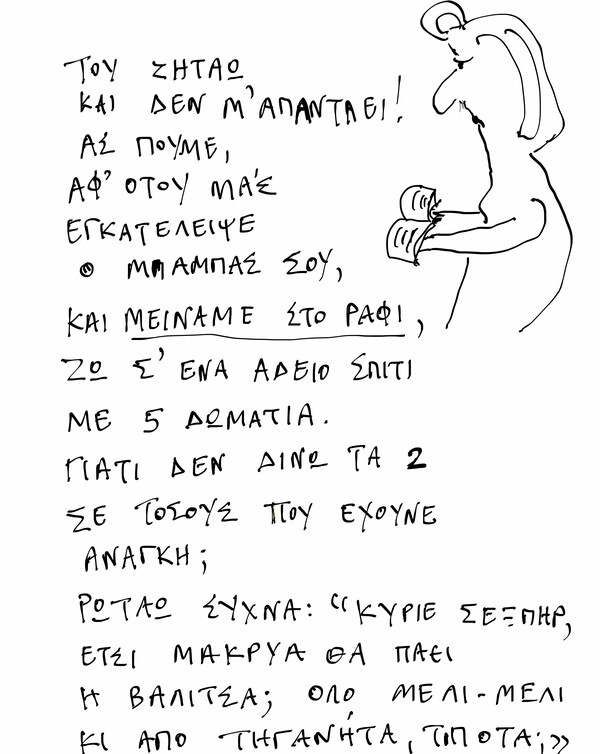 ΤΟΥ ΖΗΤΑΩ
ΚΑΙ ΔΕΝ Μ'ΑΠΑΝΤΑΕΙ!
ΑΣ ΠΟΥΜΕ,
ΑΦ' ΟΤΟΥ ΜΑΣ
ΕΓΚΑΤΕΛΕΙΨΕ
Ο ΜΠΑΜΠΑΣ ΣΟΥ,
ΚΑΙ ΜΕΙΝΑΜΕ ΣΤΟ ΡΑΦΙ,
ΖΩ Σ' ΕΝΑ ΑΔΕΙΟ ΣΠΙΤΙ
ΜΕ 5 ΔΩΜΑΤΙΑ.
ΓΙΑΤΙ ΔΕΝ ΔΙΝΩ ΤΑ 2
ΣΕ ΤΟΣΟΥΣ ΠΟΥ ΕΧΟΥΝΕ
ΑΝΑΓΚΗ;
ΡΩΤΑΩ ΣΥΧΝΑ: “ΚΥΡΙΕ ΣΕΞΠΗΡ,
ΕΤΣΙ ΜΑΚΡΥΑ ΘΑ ΠΑΕΙ
Η ΒΑΛΙΤΣΑ; ΟΛΟ ΜΕΛΙ-ΜΕΛΙ
ΚΙ ΑΠΟ ΤΗΓΑΝΉΤΑ, ΤΙΠΟΤΑ;»